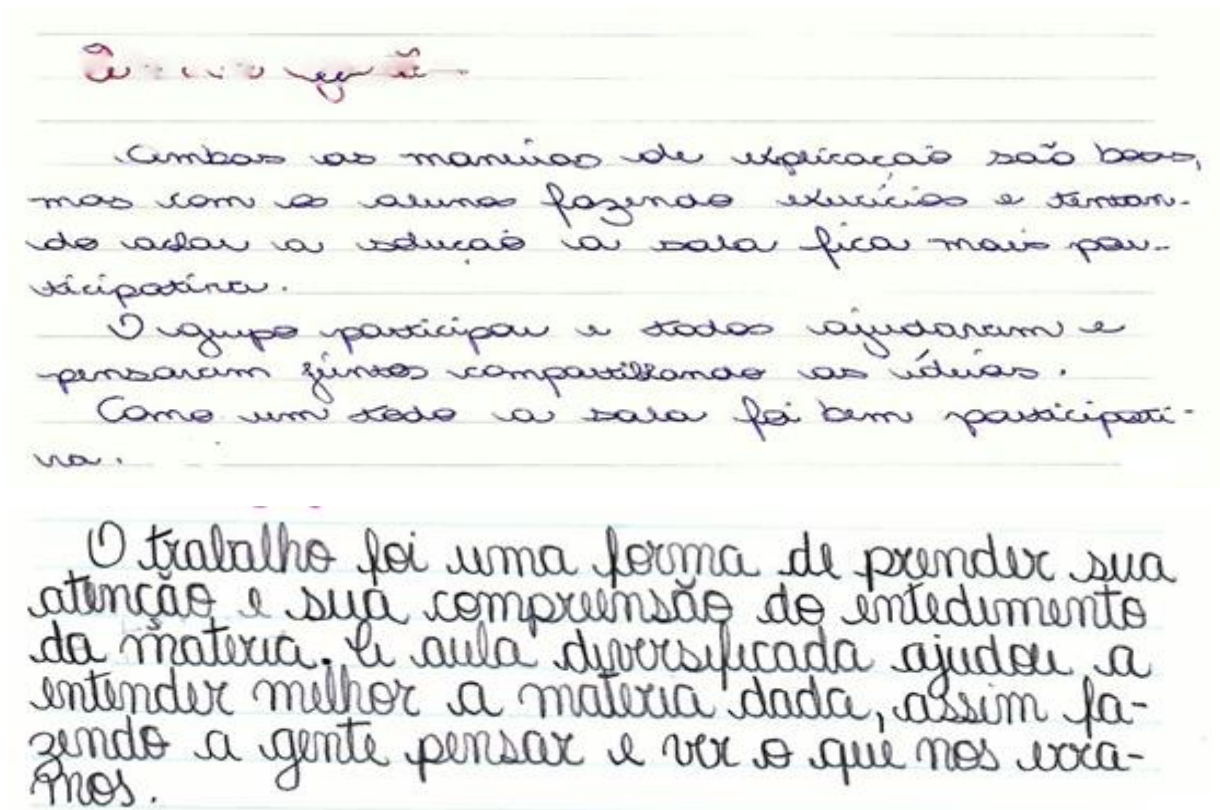 Ambas as maneiras de explicação são boas,
mas com os alunos fazendo exercícios e tentan-
do achar a solução a sala fica mais par-
ticipativa.
O grupo participou e todos ajudaram e
pensaram juntos compartilhando as idéias.
Como um todo a sala foi bem participati-
va.
O trabalho foi uma forma de prender sua
atenção e sua compreensão do entedimento
da materia. A aula diversificada ajudou a
entender melhor a materia dada, assim fa-
zendo a gente pensar e ver o que nos erra-
mos.